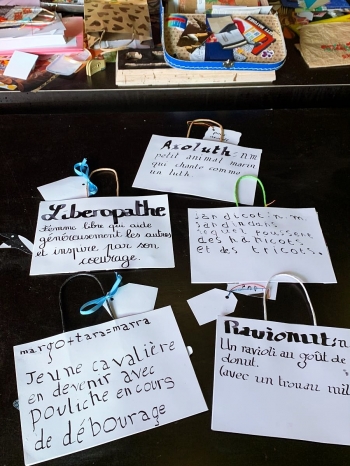 Azoluth. n.m
petit animal marin
qui chante comme
un luth.
Liberopathe
Femme libre qui aide
généreusement les autres
et inspire par son
courage.
Jardicotin.m
Jardin dans
lequel poussent
des haricots
et des tricots.
margo+tara=marra
Jeune cavalière
en devenir avec
pouliche en cours
de débourage
Ravionut
Un ravioli au goût de
donut.
(avec un trou au mil